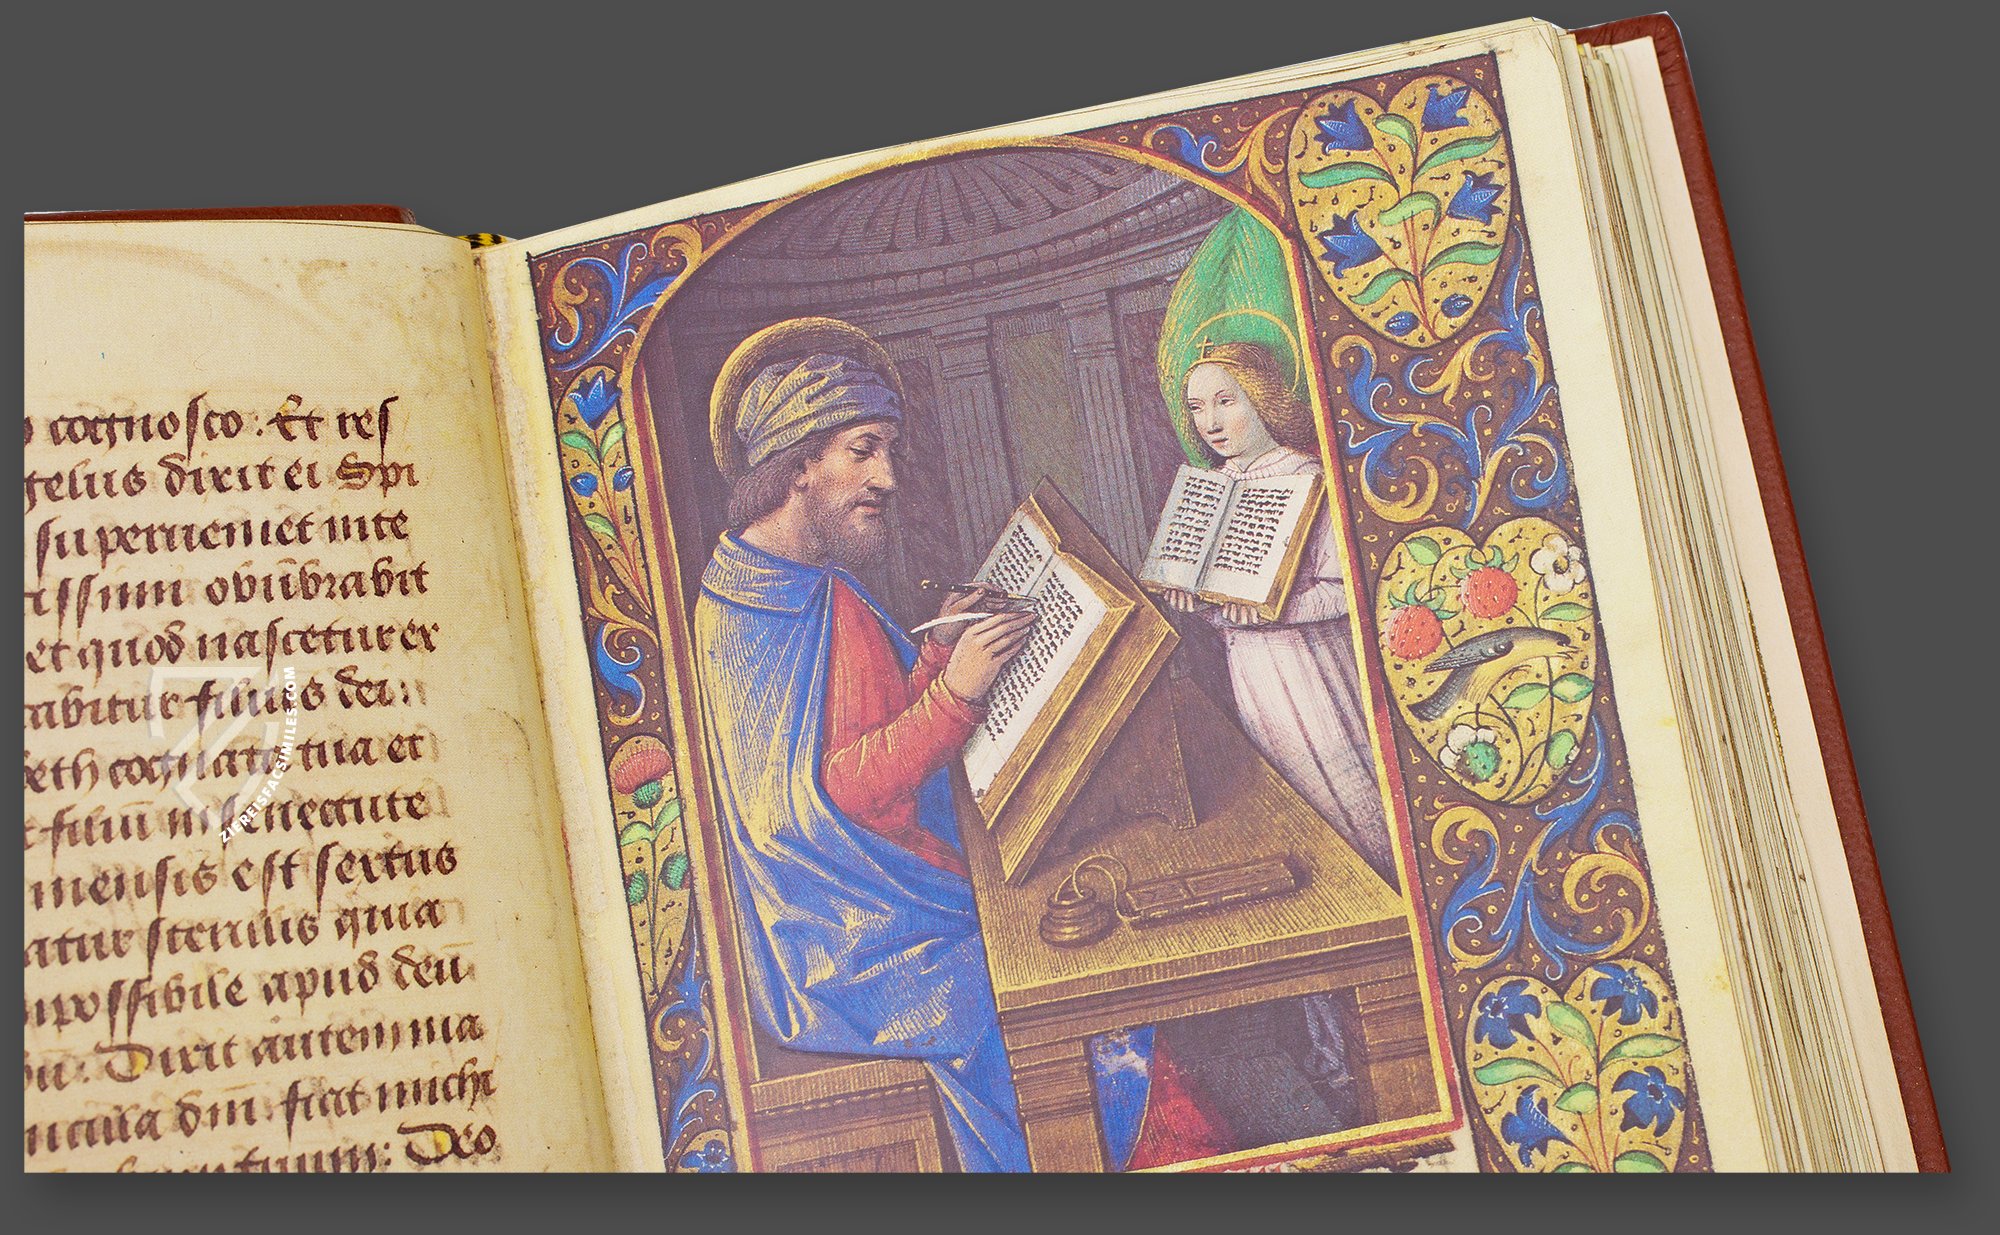 cognosco: Et res
gelus dixit ei Spi
superveniet in te
tissimi obūbrabit
et quod nascetur ex
cabitur filius dei:
beth cognata tua et
t filiū in senectute
mensis est sextus
catur sterilis quia
impossibile apud deū
bū. Dixit autem ma
ancilla dm̄ fiat michi
verbum tuum: Deo
ZIEREISFACSIMILES.COM